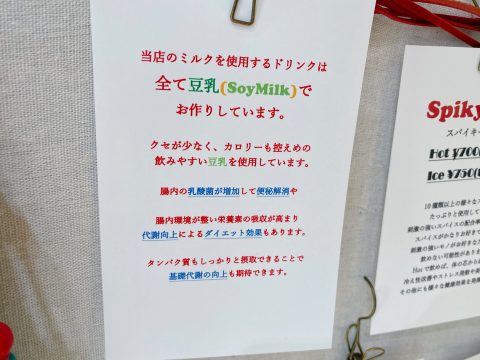 当店のミルクを使用するドリンクは
全て豆乳(SoyMilk)で
お作りしています。
クセが少なく、カロリーも控えめの
飲みやすい豆乳を使用しています。
腸内の乳酸菌が増加して便秘解消や
腸内環境が整い栄養素の吸収が高まり
代謝向上によるダイエット効果もあります。
タンパク質もしっかりと摂取できることで
基礎代謝の向上も期待できます。
Spiky
スパイキー
Hot ¥700(
Ice ¥750(
10種類以上の様々なス
たっぷりと使用して
刺激の強いスパイスの配合率
スパイスがかなりお好きで
刺激の強いモノがお好きな
飲めない可能性がありま
Hotで飲めば、体の芯から
冷え性改善やストレス発散や
その他にも様々な健康効果を発揮